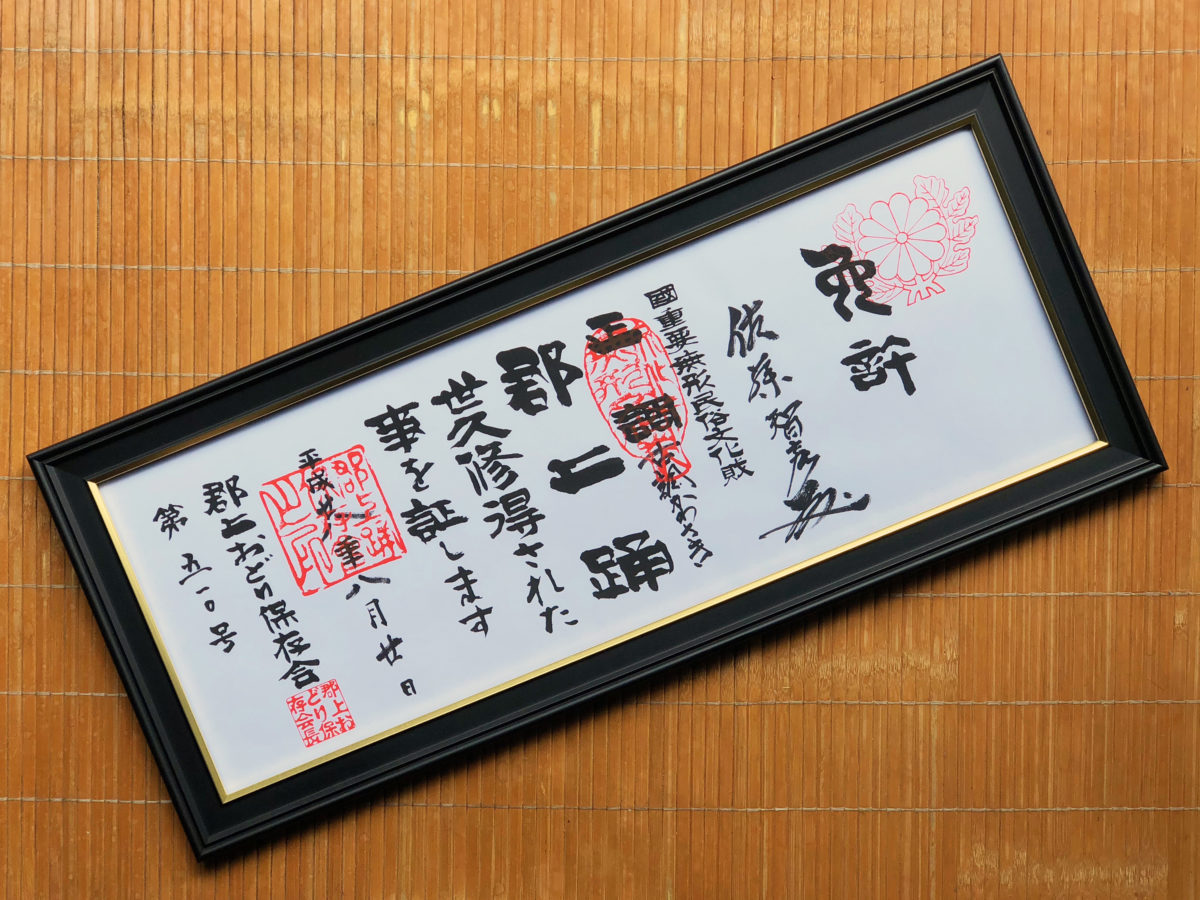 免許
佐藤智彦殿
國重要無形民俗文化財
正調 かわさき
郡上踊
世久修得された
事を証します
平成廿 年八月廿日
郡上おどり保存会
郡上おどり保存会長
第五一〇号